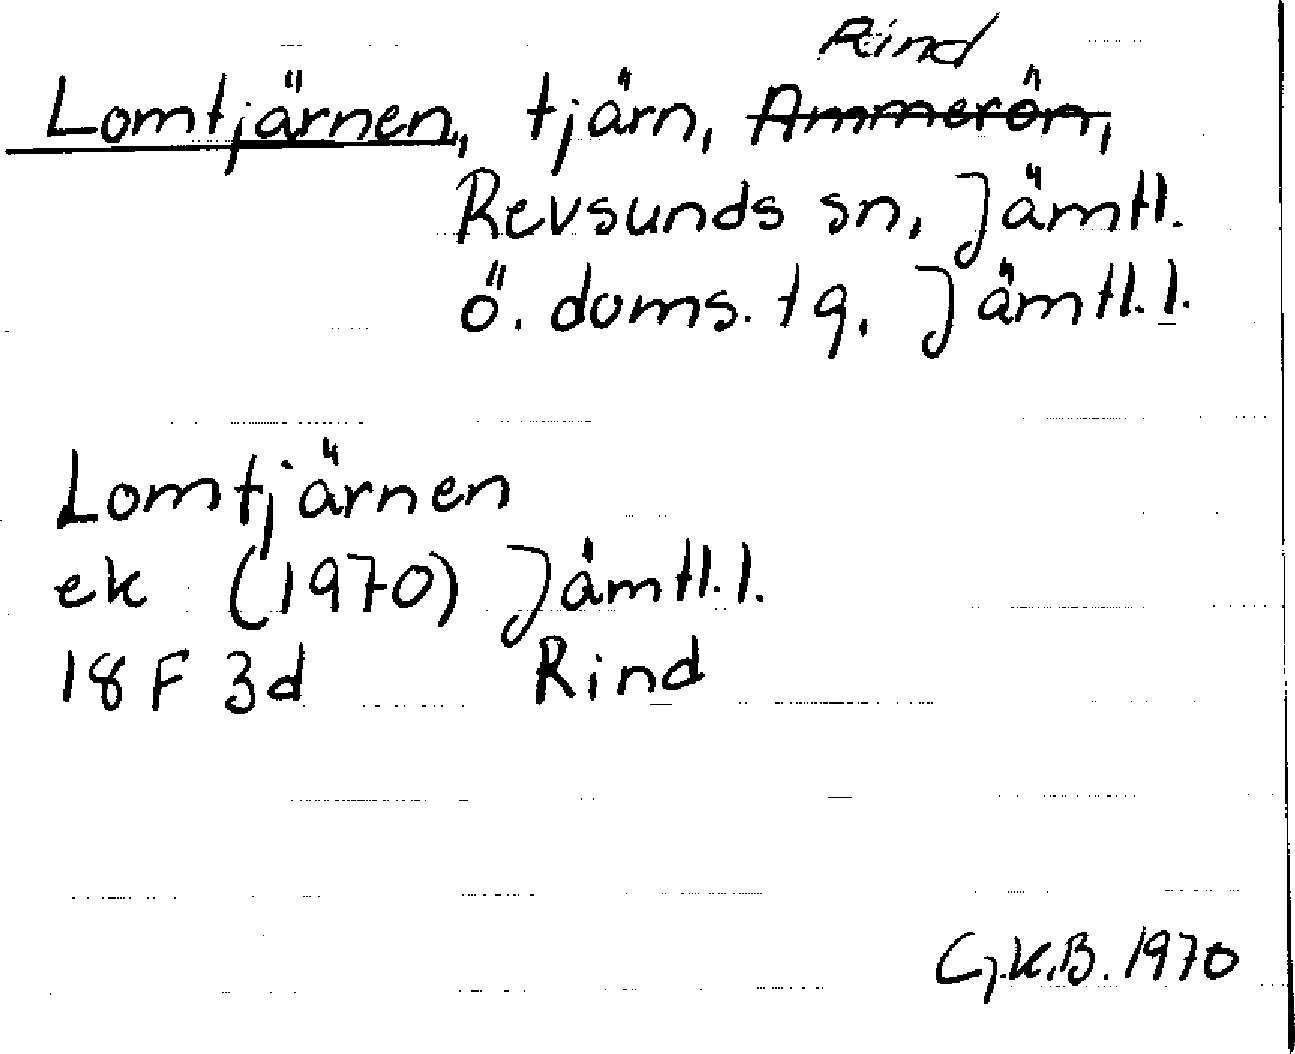 Rind
Lomtjärnen, tjärn, Ammerön,
Revsunds sn, Jämtl.
ö. doms. tg. Jämtl. l.
Lomtjärnen
ek (1970) Jämtl. l.
18 F 3d Rind
G.K.B. 1970